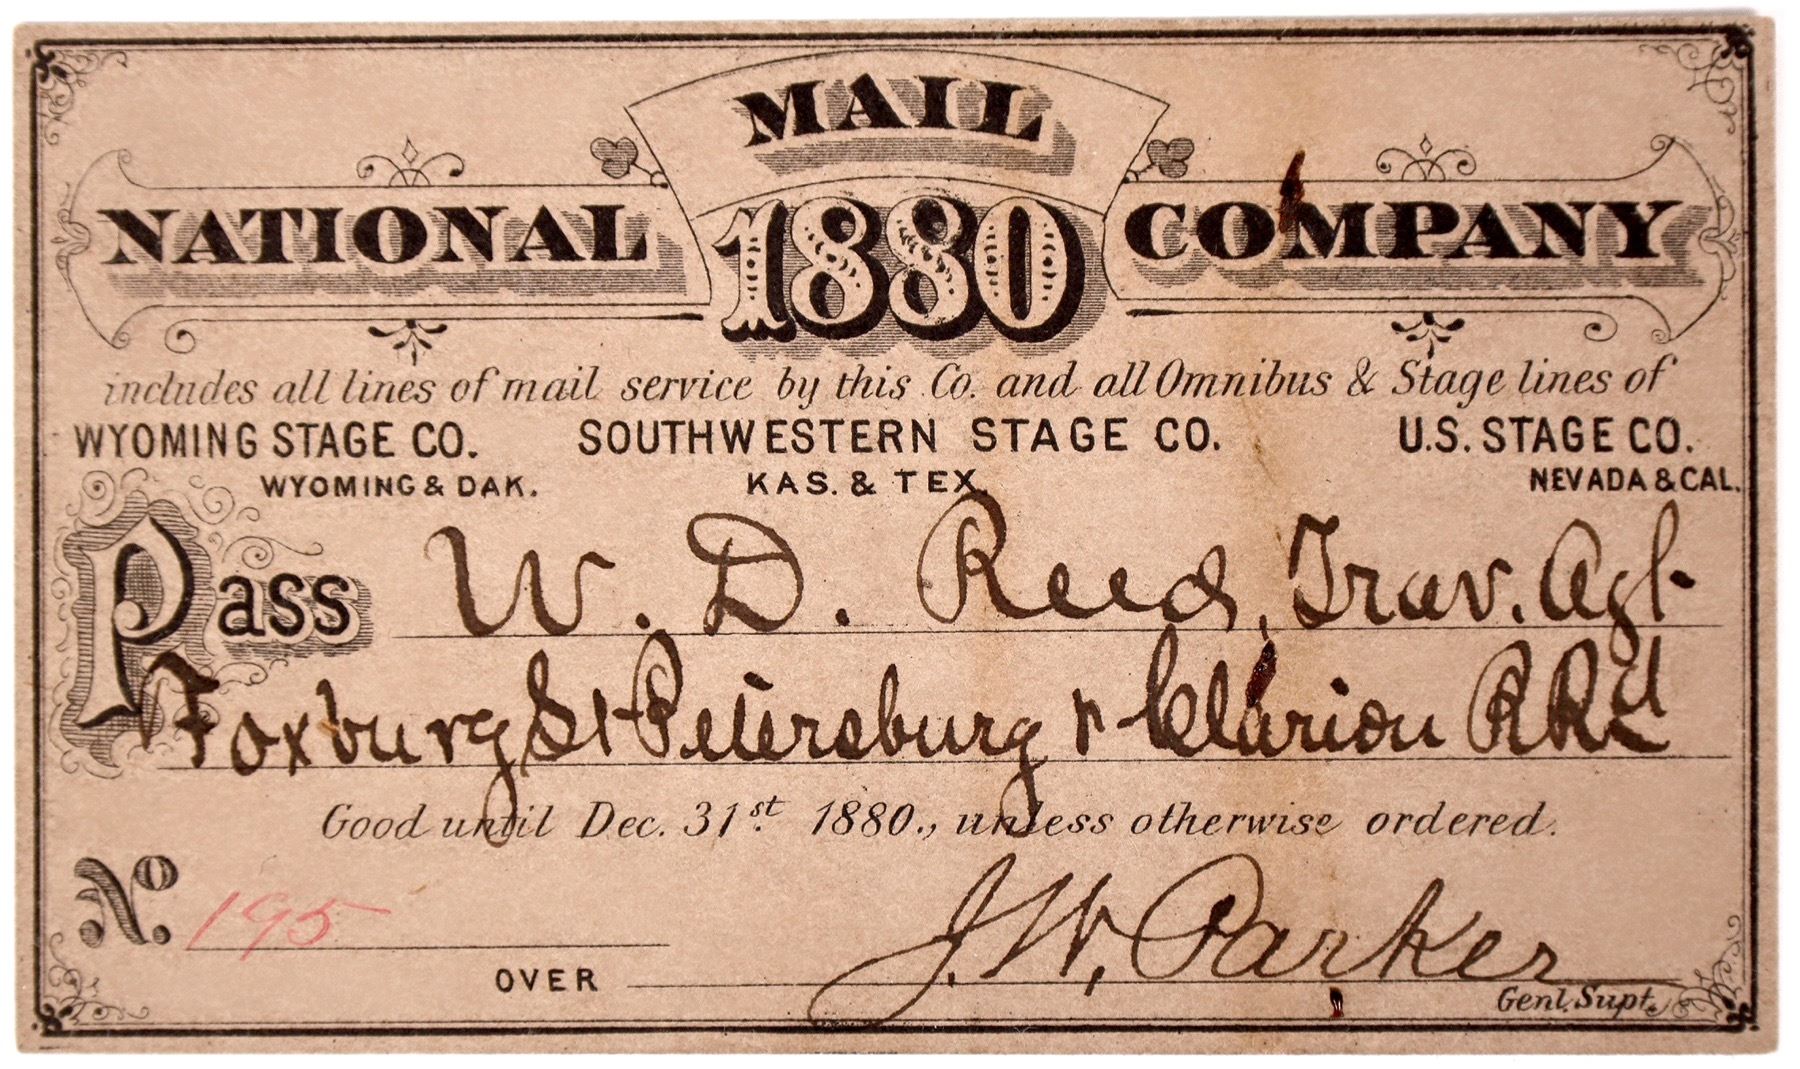 NATIONAL MAIL COMPANY
1880
includes all lines of mail service by this Co. and all Omnibus & Stage lines of
WYOMING STAGE CO. SOUTHWESTERN STAGE CO. U.S. STAGE CO.
WYOMING & DAK. KAS. & TEX. NEVADA & CAL.
Pass W. D. Reed, Trav. Agt.
Foxburg St Petersburg & Clarion RRd
Good until Dec. 31st. 1880., unless otherwise ordered.
No. 195
OVER J. W. Parker
Genl. Supt.